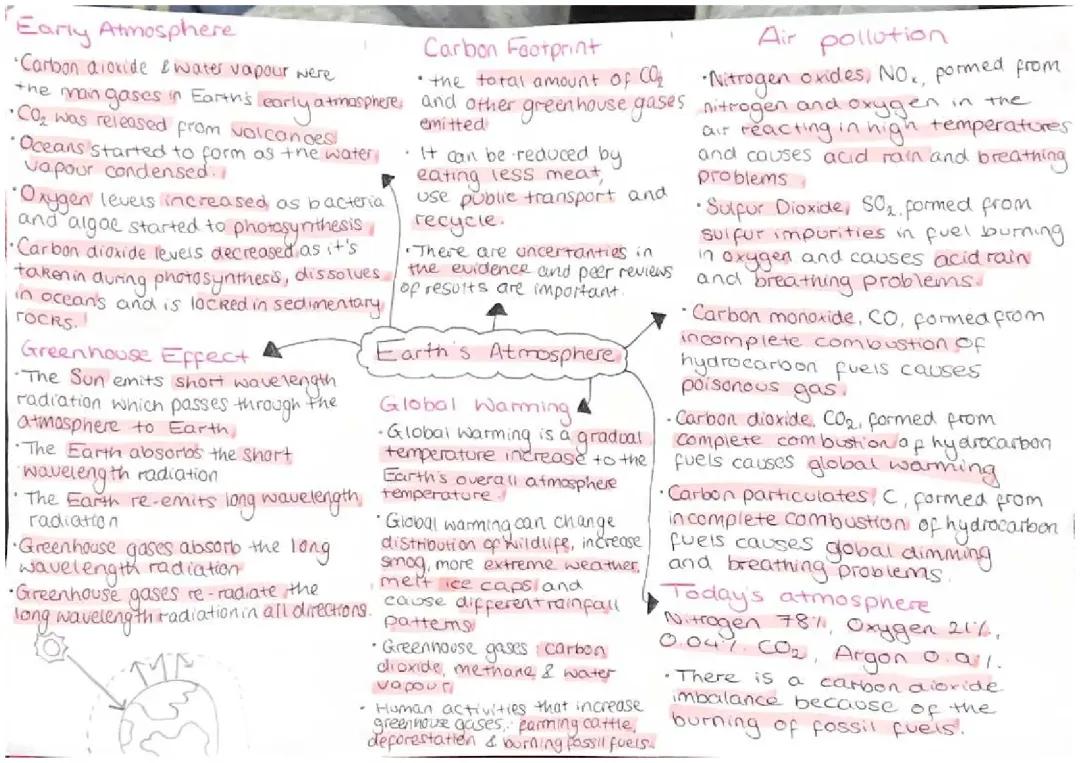 Early Atmosphere
· Carbon dioxide & water vapour were
the main gases in Earth's early atmosphere.
· CO₂ was released from volcanoes
· Oceans started to form as the water
vapour condensed.
· Oxygen levels increased as bacteria
and algae started to photosynthesis
· Carbon dioxide levels decreased as it's
taken in during photosynthesis, dissolves
in ocean's and is locked in sedimentary
rocks.
Greenhouse Effect
· The Sun emits short wavelength
radiation which passes through the
atmosphere to Earth.
· The Earth absorbs the short
wavelength radiation
· The Earth re-emits long wavelength
radiation
· Greenhouse gases absorb the long
wavelength radiation
· Greenhouse gases re-radiate the
long wavelength radiation in all directions.
Carbon Footprint
· the total amount of CO₂
and other greenhouse gases
emitted
· It can be reduced by
eating less meat,
use public transport and
recycle.
· There are uncertanties in
the evidence and peer reviews
of results are important.
Earth's Atmosphere
Global Warming
· Global Warming is a gradual
temperature increase to the
Earth's overall atmosphere
temperature.
· Global warming can change
distribution of wildlife, increase
smog, more extreme weather,
melt ice caps and
cause different rainfall
patterns
· Greenhouse gases: carbon
dioxide, methane & water
vapour
· Human activities that increase
greenhouse gases: farming cattle,
deforestation & burning fossil fuels.
Air pollution
· Nitrogen oxides, NOₓ, formed from
nitrogen and oxygen in the
air reacting in high temperatures
and causes acid rain and breathing
problems
· Sulfur Dioxide, SO₂, formed from
sulfur impurities in fuel burning
in oxygen and causes acid rain
and breathing problems.
· Carbon monoxide, CO, formed from
incomplete combustion of
hydrocarbon fuels causes
poisonous gas.
· Carbon dioxide, CO₂, formed from
complete combustion of hydrocarbon
fuels causes global warming
· Carbon particulates, C, formed from
incomplete combustion of hydrocarbon
fuels causes global dimming
and breathing problems.
Today's atmosphere
Nitrogen 78%, Oxygen 21%,
0.04% CO₂, Argon 0.9%.
· There is a carbon dioxide
imbalance because of the
burning of fossil fuels.